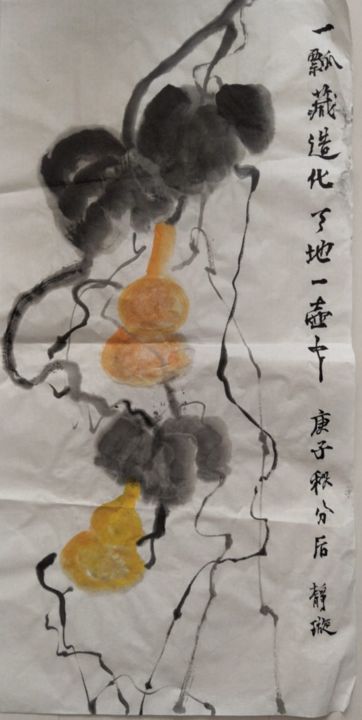 一瓢藏造化天地一壶中 庚子秋分后 静璇